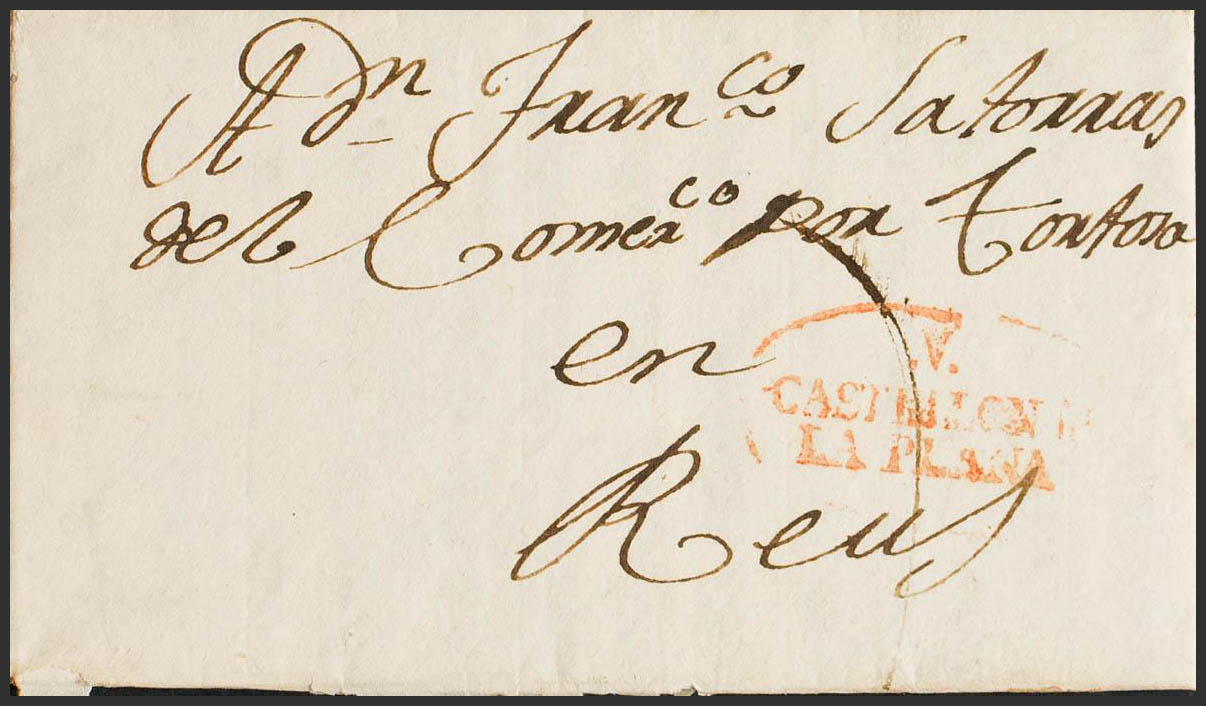 A dn Franco Satorras
del Comerco por Tortosa
en
.V.
CASTELLON D
LA PLANA
Reus